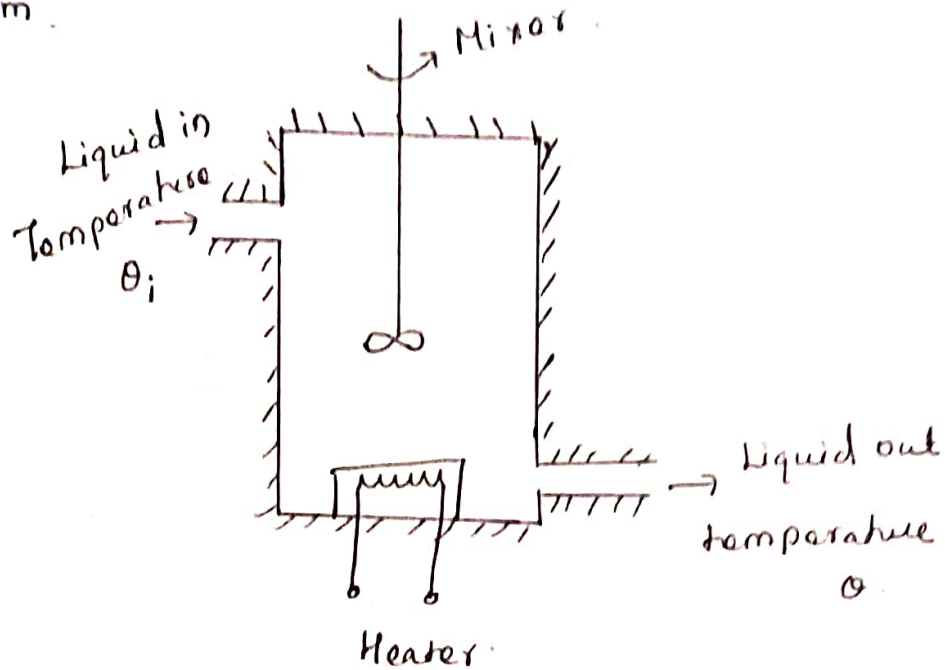 m.
Mixor
Liquid in
Temperature
θi
Liquid out
temperature
θ
Heater.